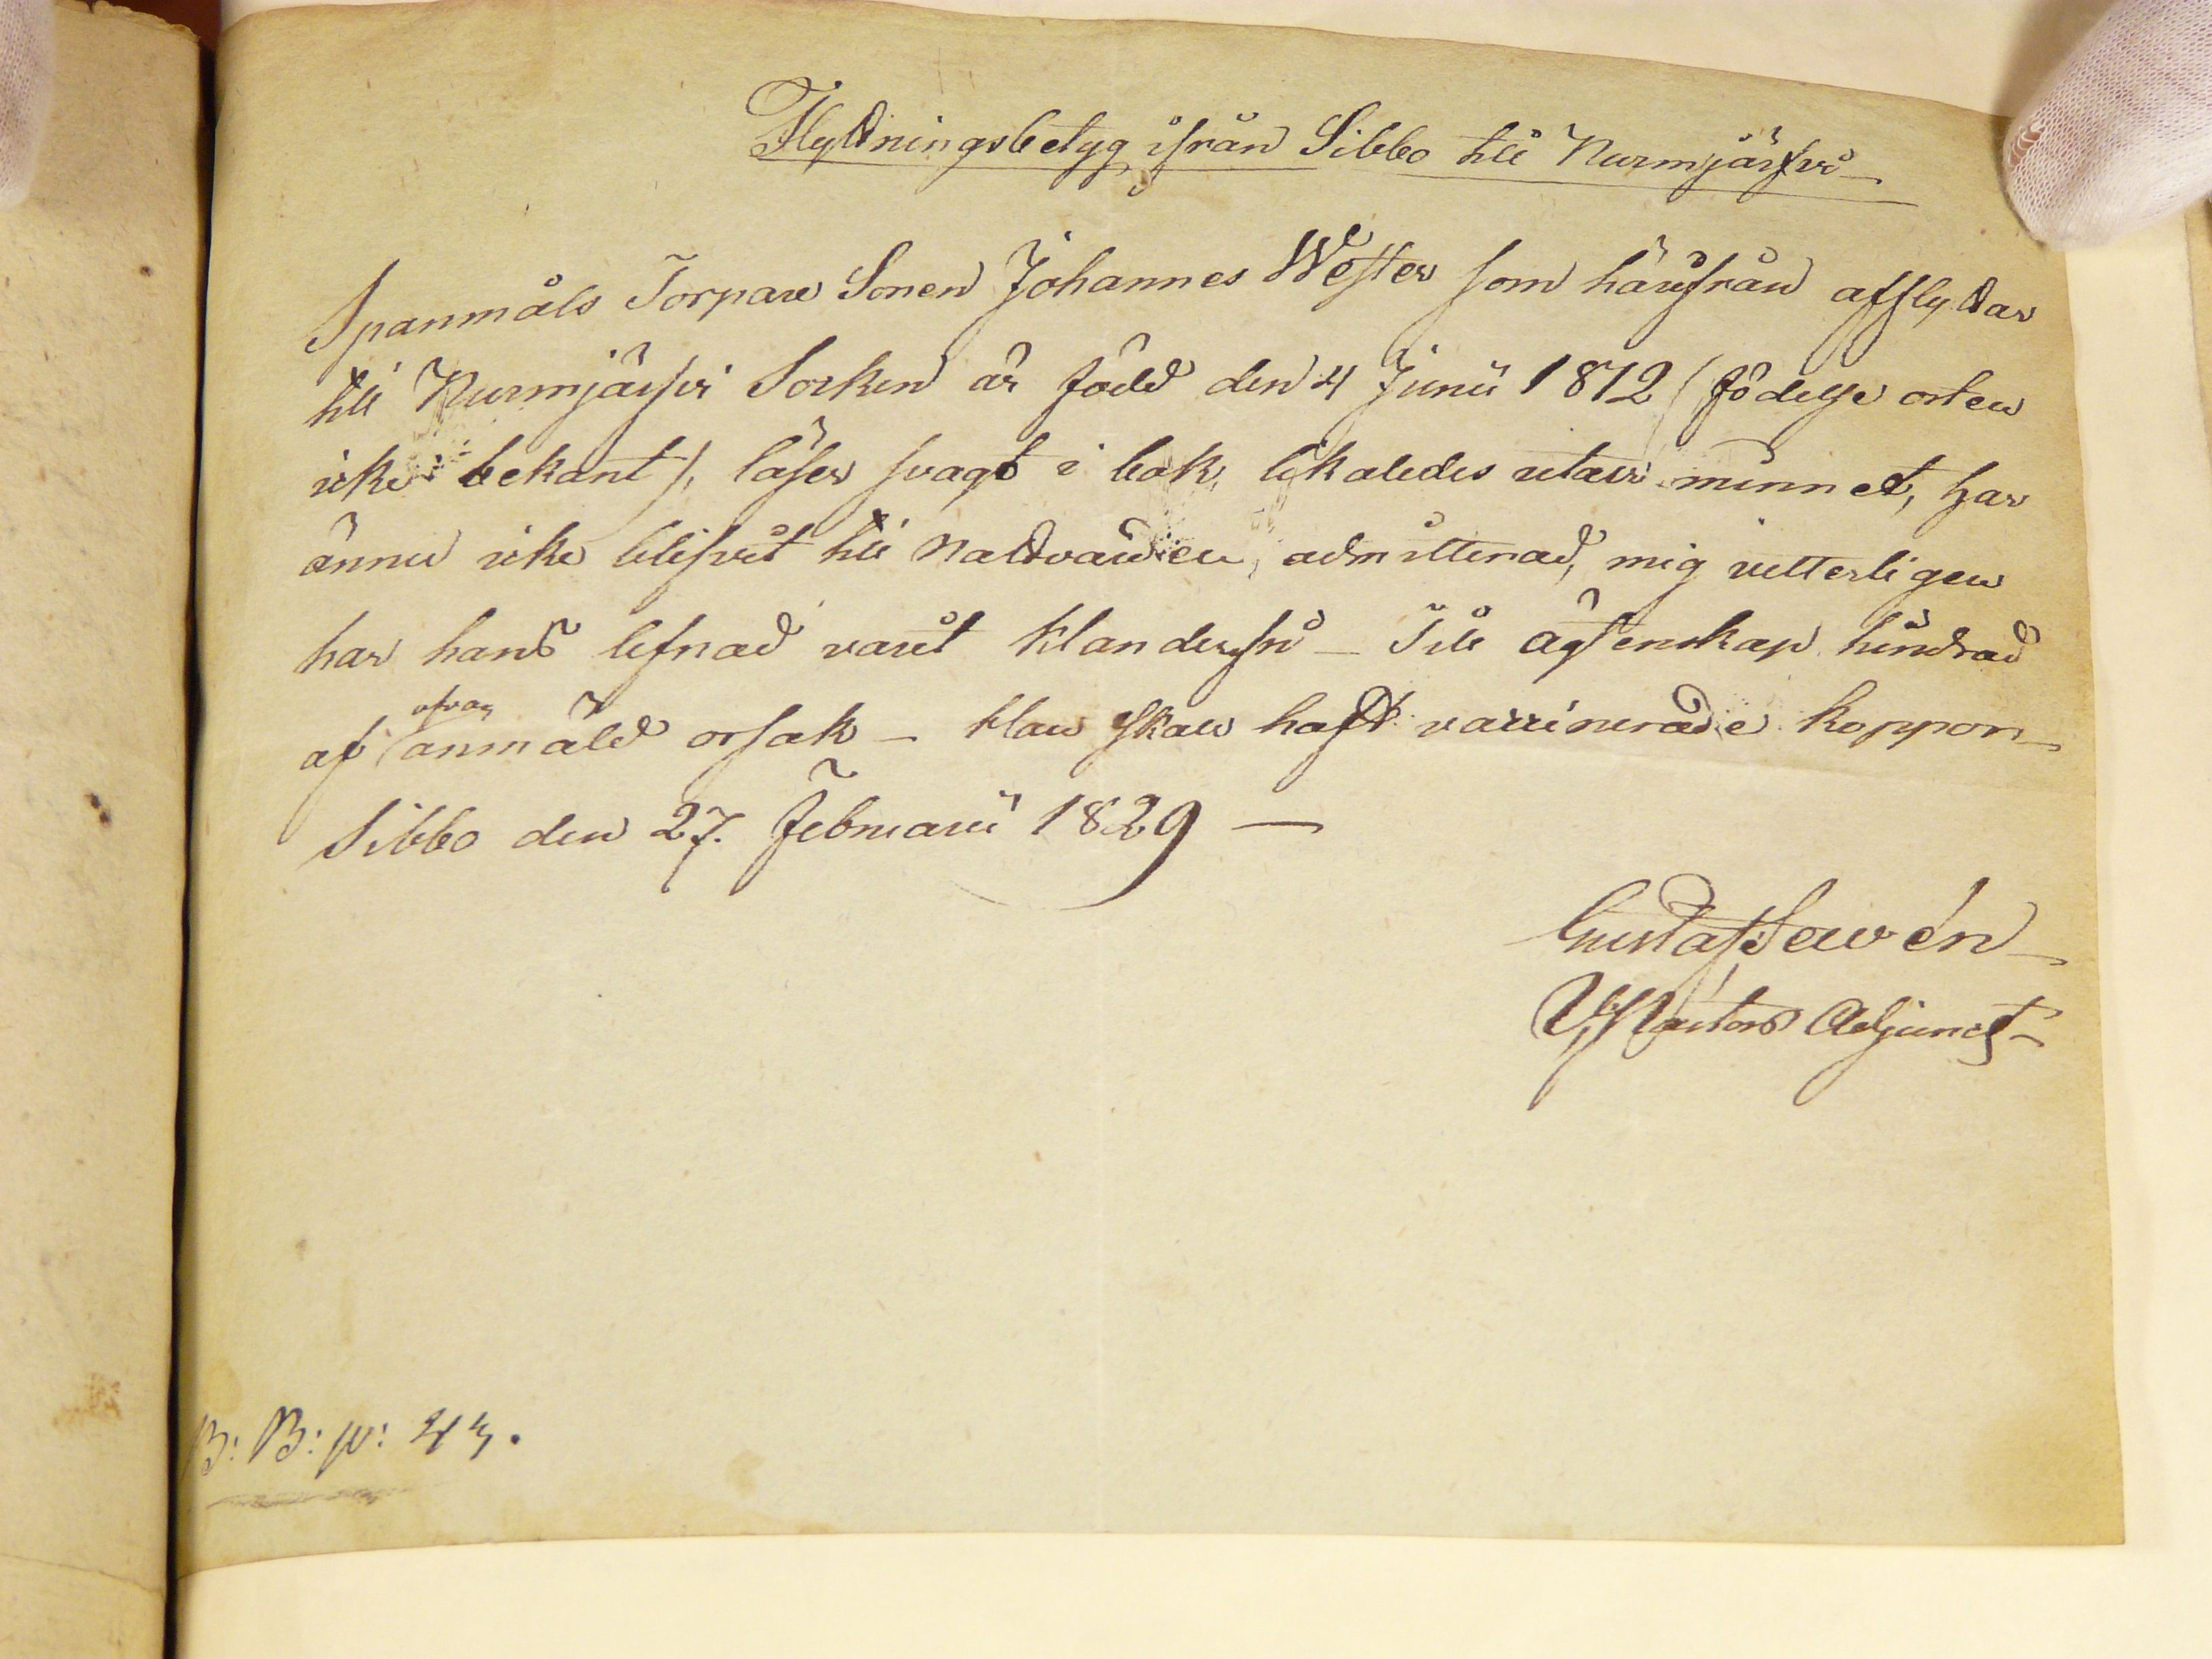 Flyttningsbetyg ifrån Sibbo till Nurmijärfvi
Spanmåls Torpare Sonen Johannes Wester som härifrån afflyttar
till Nurmjärfvi Socken är född den 4 Junii 1812 /födelse orten
icke bekant/, läser svagt i bok, likaledes utur minnet, har
ännu icke blifvit till Nattvarden admitterad, mig vetterligen
har hans lefnad varit klanderfri – Till ägtenskap hindrad
af ofvan anmäld orsak – han skall haft vaccinerade koppor –
Sibbo den 27. Februarii 1829 –
Gustaf Sawén
V. Pastors Adjunct
B: B: p: 43.